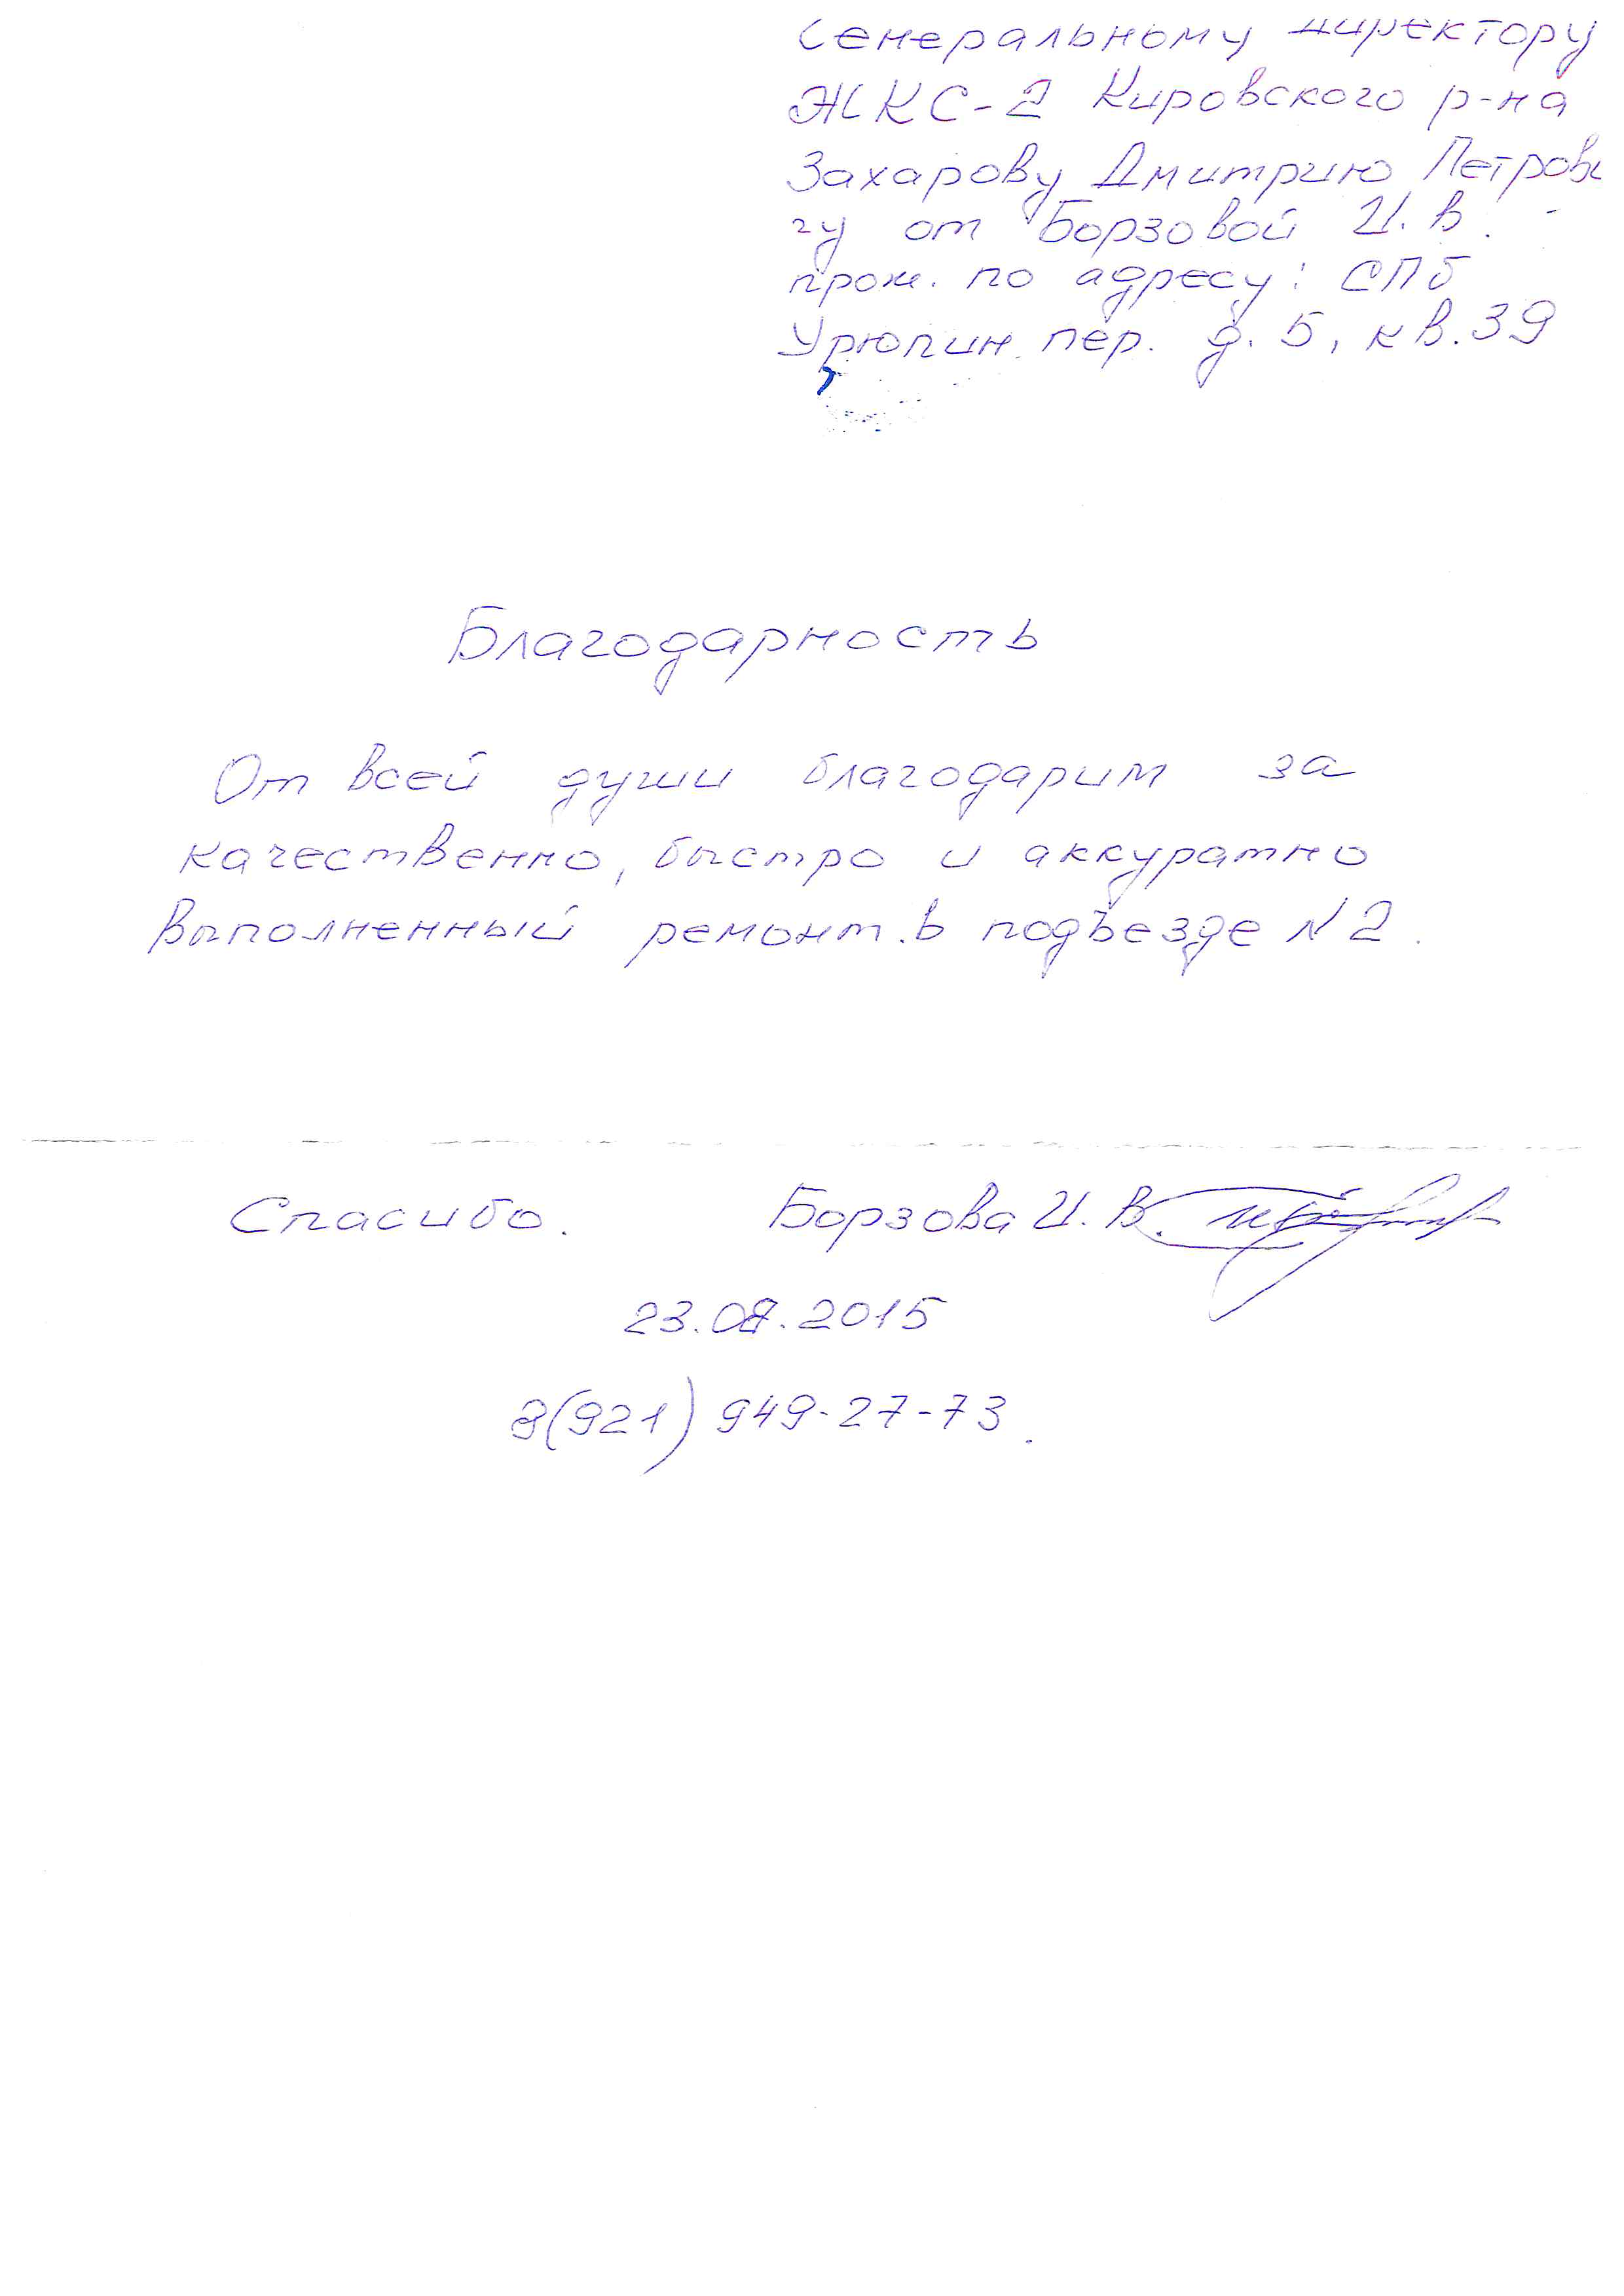 Генеральному директору
ЖКС-2 Кировского р-на
Захарову Дмитрию Петрови
чу от Борзовой И.В.
прож. по адресу: СПб
Урюпин. пер. д. 5, кв. 39
Благодарность
От всей души благодарим за
качественно, быстро и аккуратно
выполненный ремонт. в подъезде N 2.
Спасибо. Борзова И. В.
23.08.2015
8(921) 949-27-73.